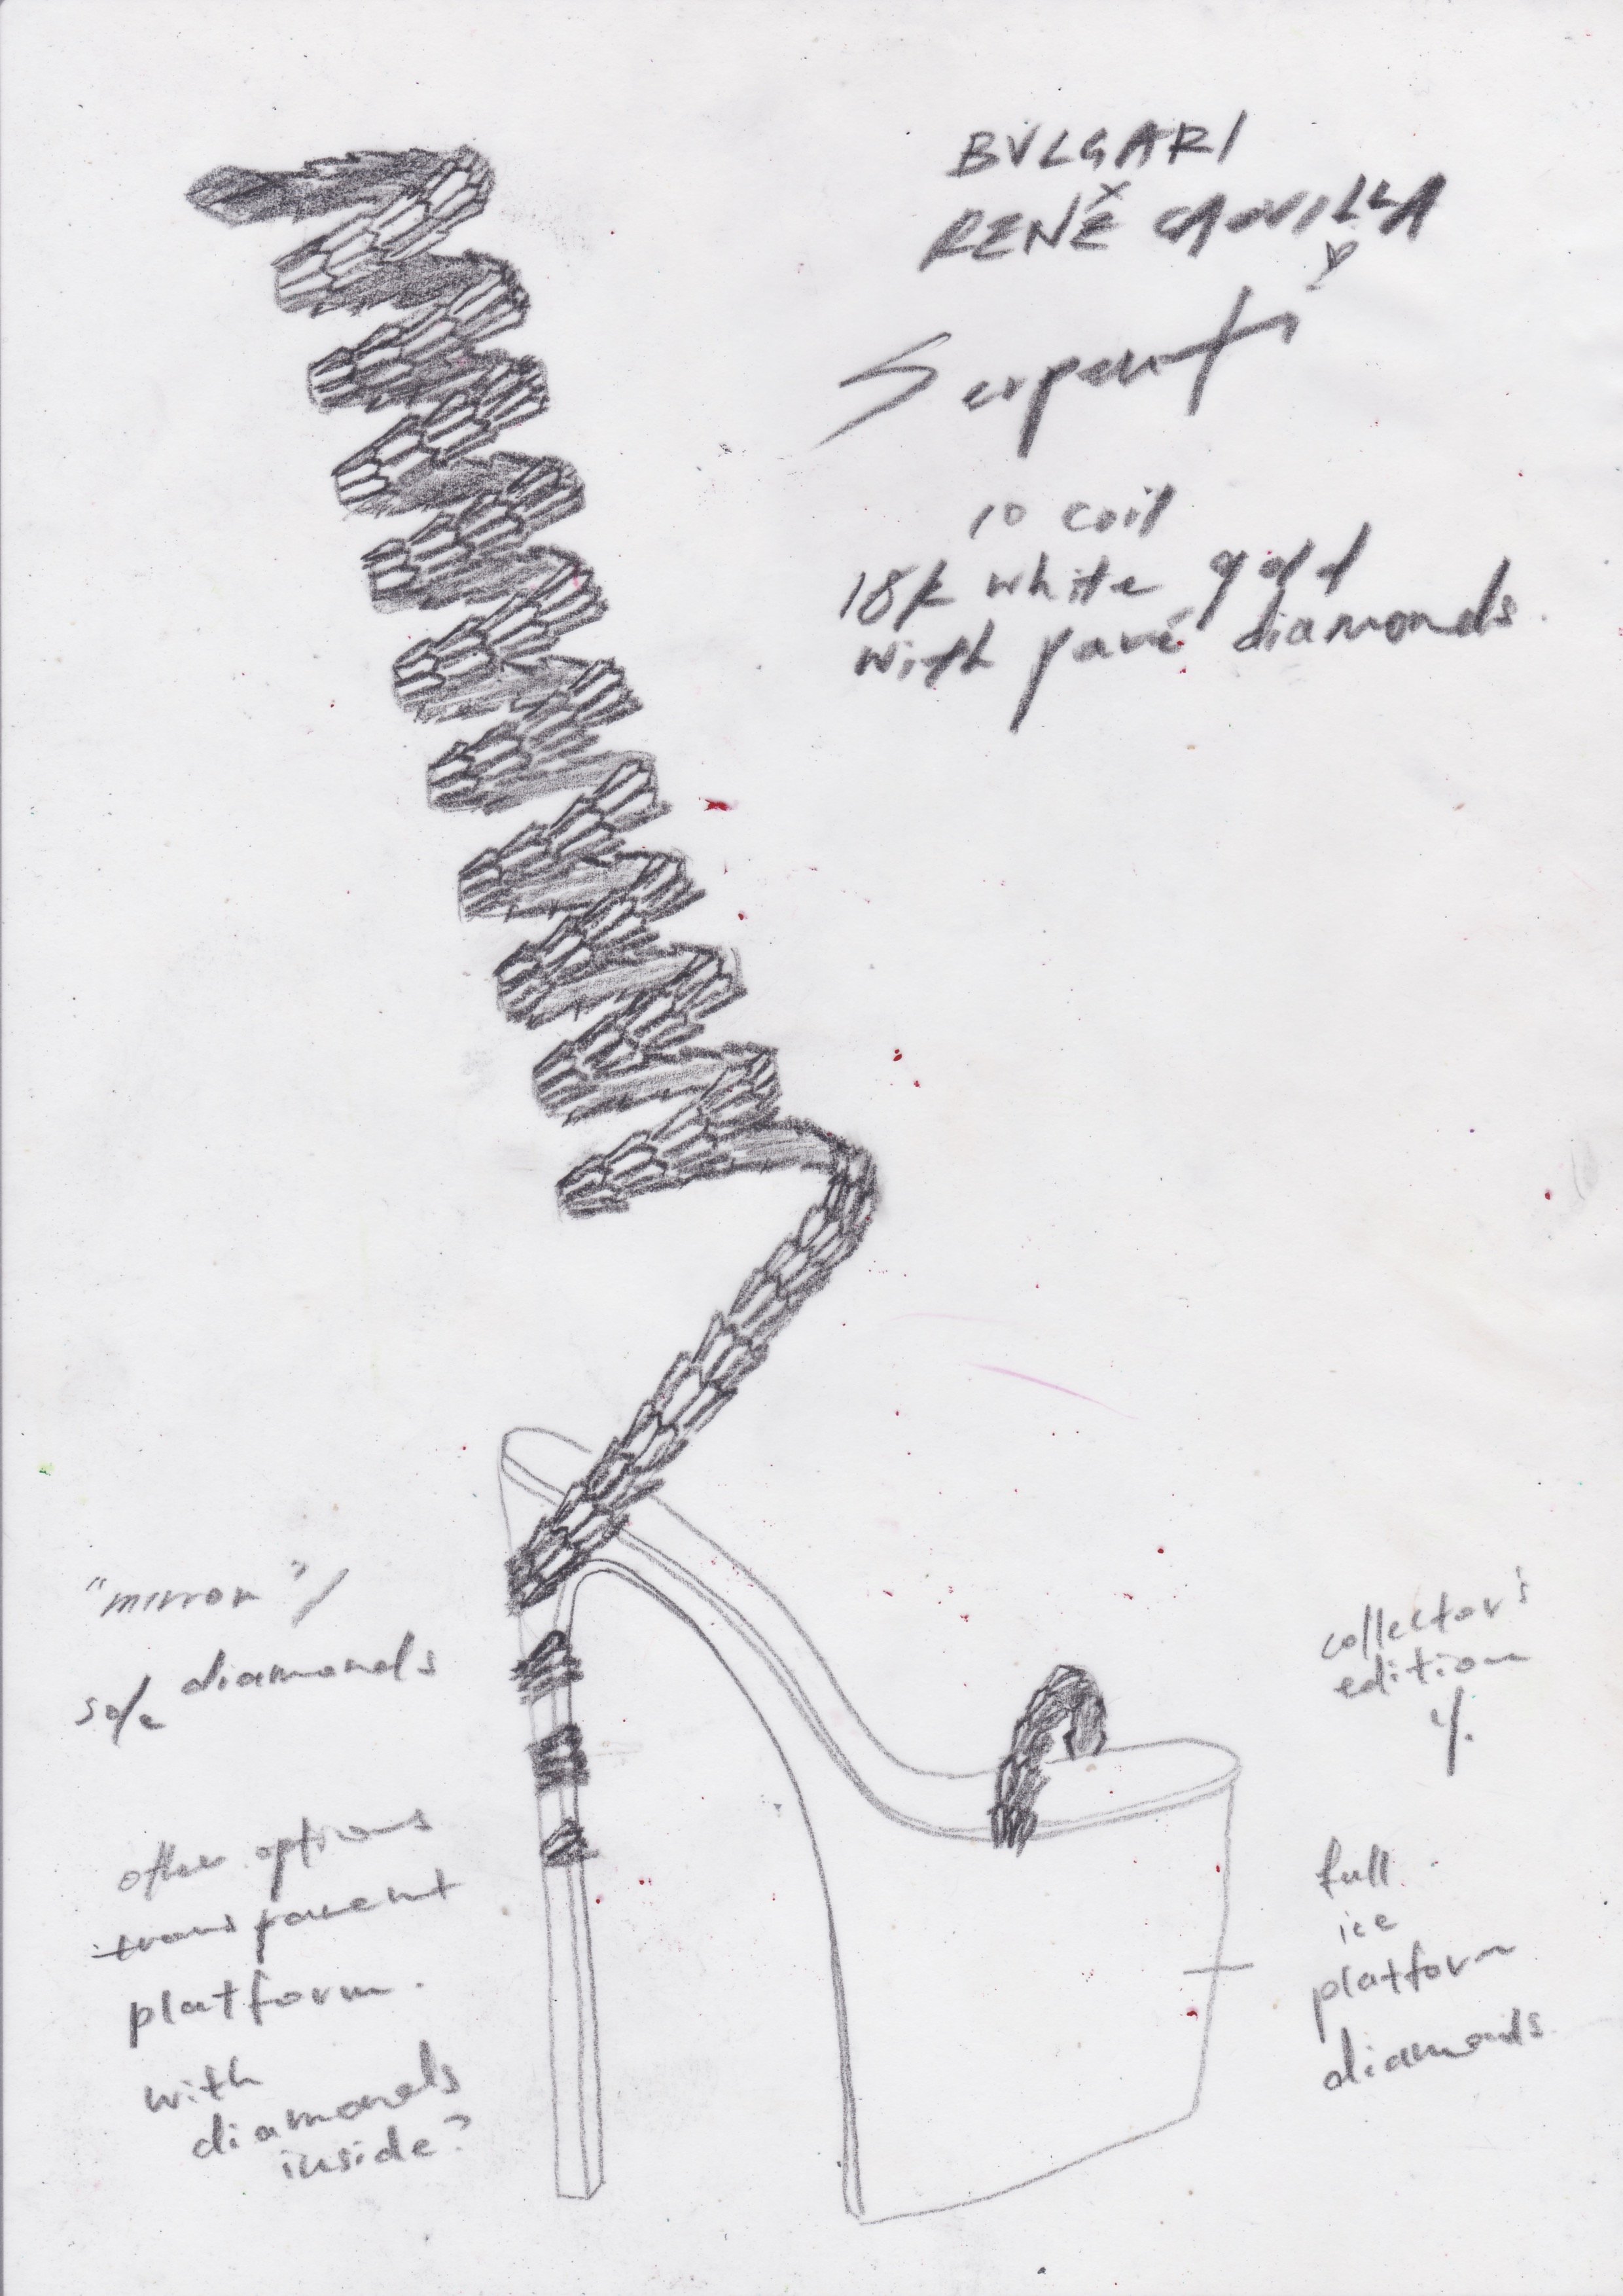 BVLGARI
x
RENE CAOVILLA
Serpenti
10 coil
18k white gold
with pavé diamonds.
"mirror"/
diamonds
sole
other options
transparent
platform.
with
diamonds
inside?
collector's
edition
full
ice
platform
diamonds.